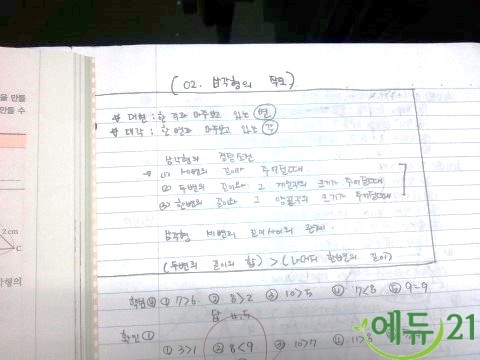 을 만들
만들 수
2 cm
C
각형의
(02. 삼각형의 작도)
* 대변 : 한 각과 마주보고 있는 변
* 대각 : 한 변과 마주보고 있는 각
삼각형의 결정조건
(1) 세변의 길이가 주어질때
(2) 두변의 길이와 그 끼인각의 크기가 주어질때
(3) 한변의 길이와 그 양끝각의 크기가 주어질때
삼각형 세변의 길이사이의 관계
(두변의 길이의 합) > (나머지 한변의 길이)
① 7>6 ② 8>2 ③ 10>5 ④ 7<8 ⑤ 9=9
답 4,5
확인 ① ① 3>1 ② 8<9 ③ 10>7 ④ 11>8
에듀21